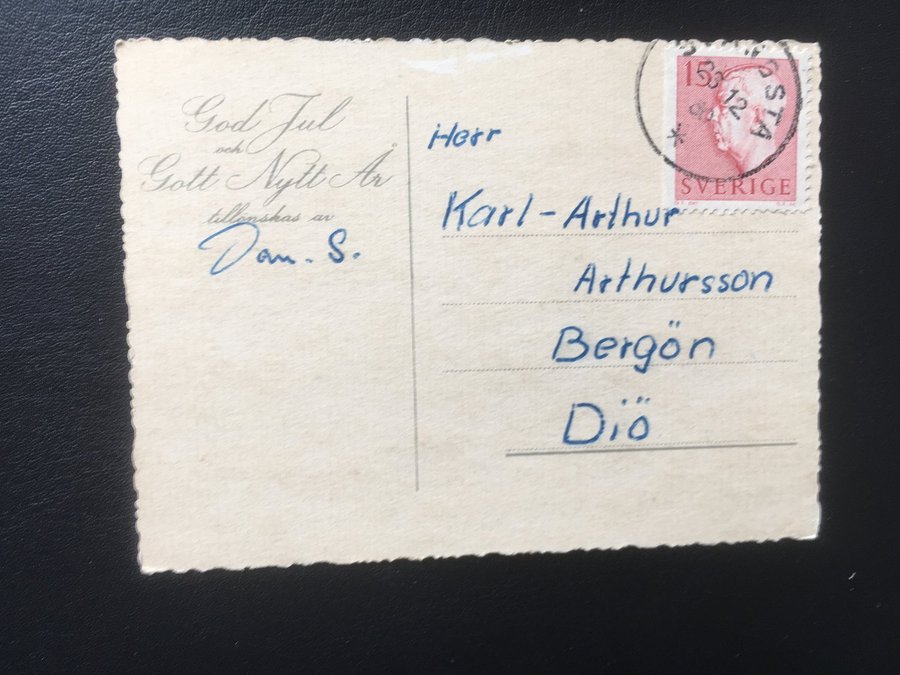 God Jul
och
Gott Nytt År
tillönskas av
Dan. S.
Herr
Karl-Arthur
Arthursson
Bergön
Diö
15
SVERIGE
12